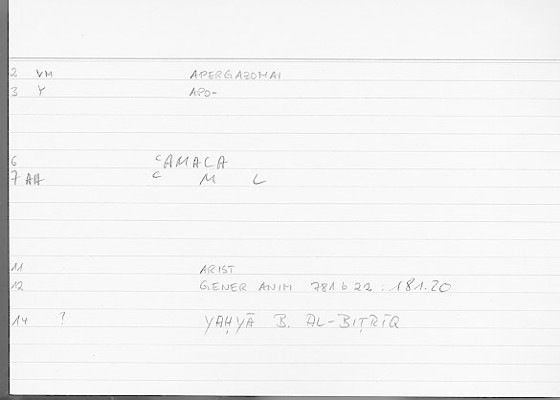 2 VM APERGAZOMAI
3 Y APO-
6 ʿAMALA
7 AA ʿ M L
11 ARIST
12 GENER ANIM 781b22 : 181.20
14 ? YAḤYĀ B. AL-BIṬRĪQ